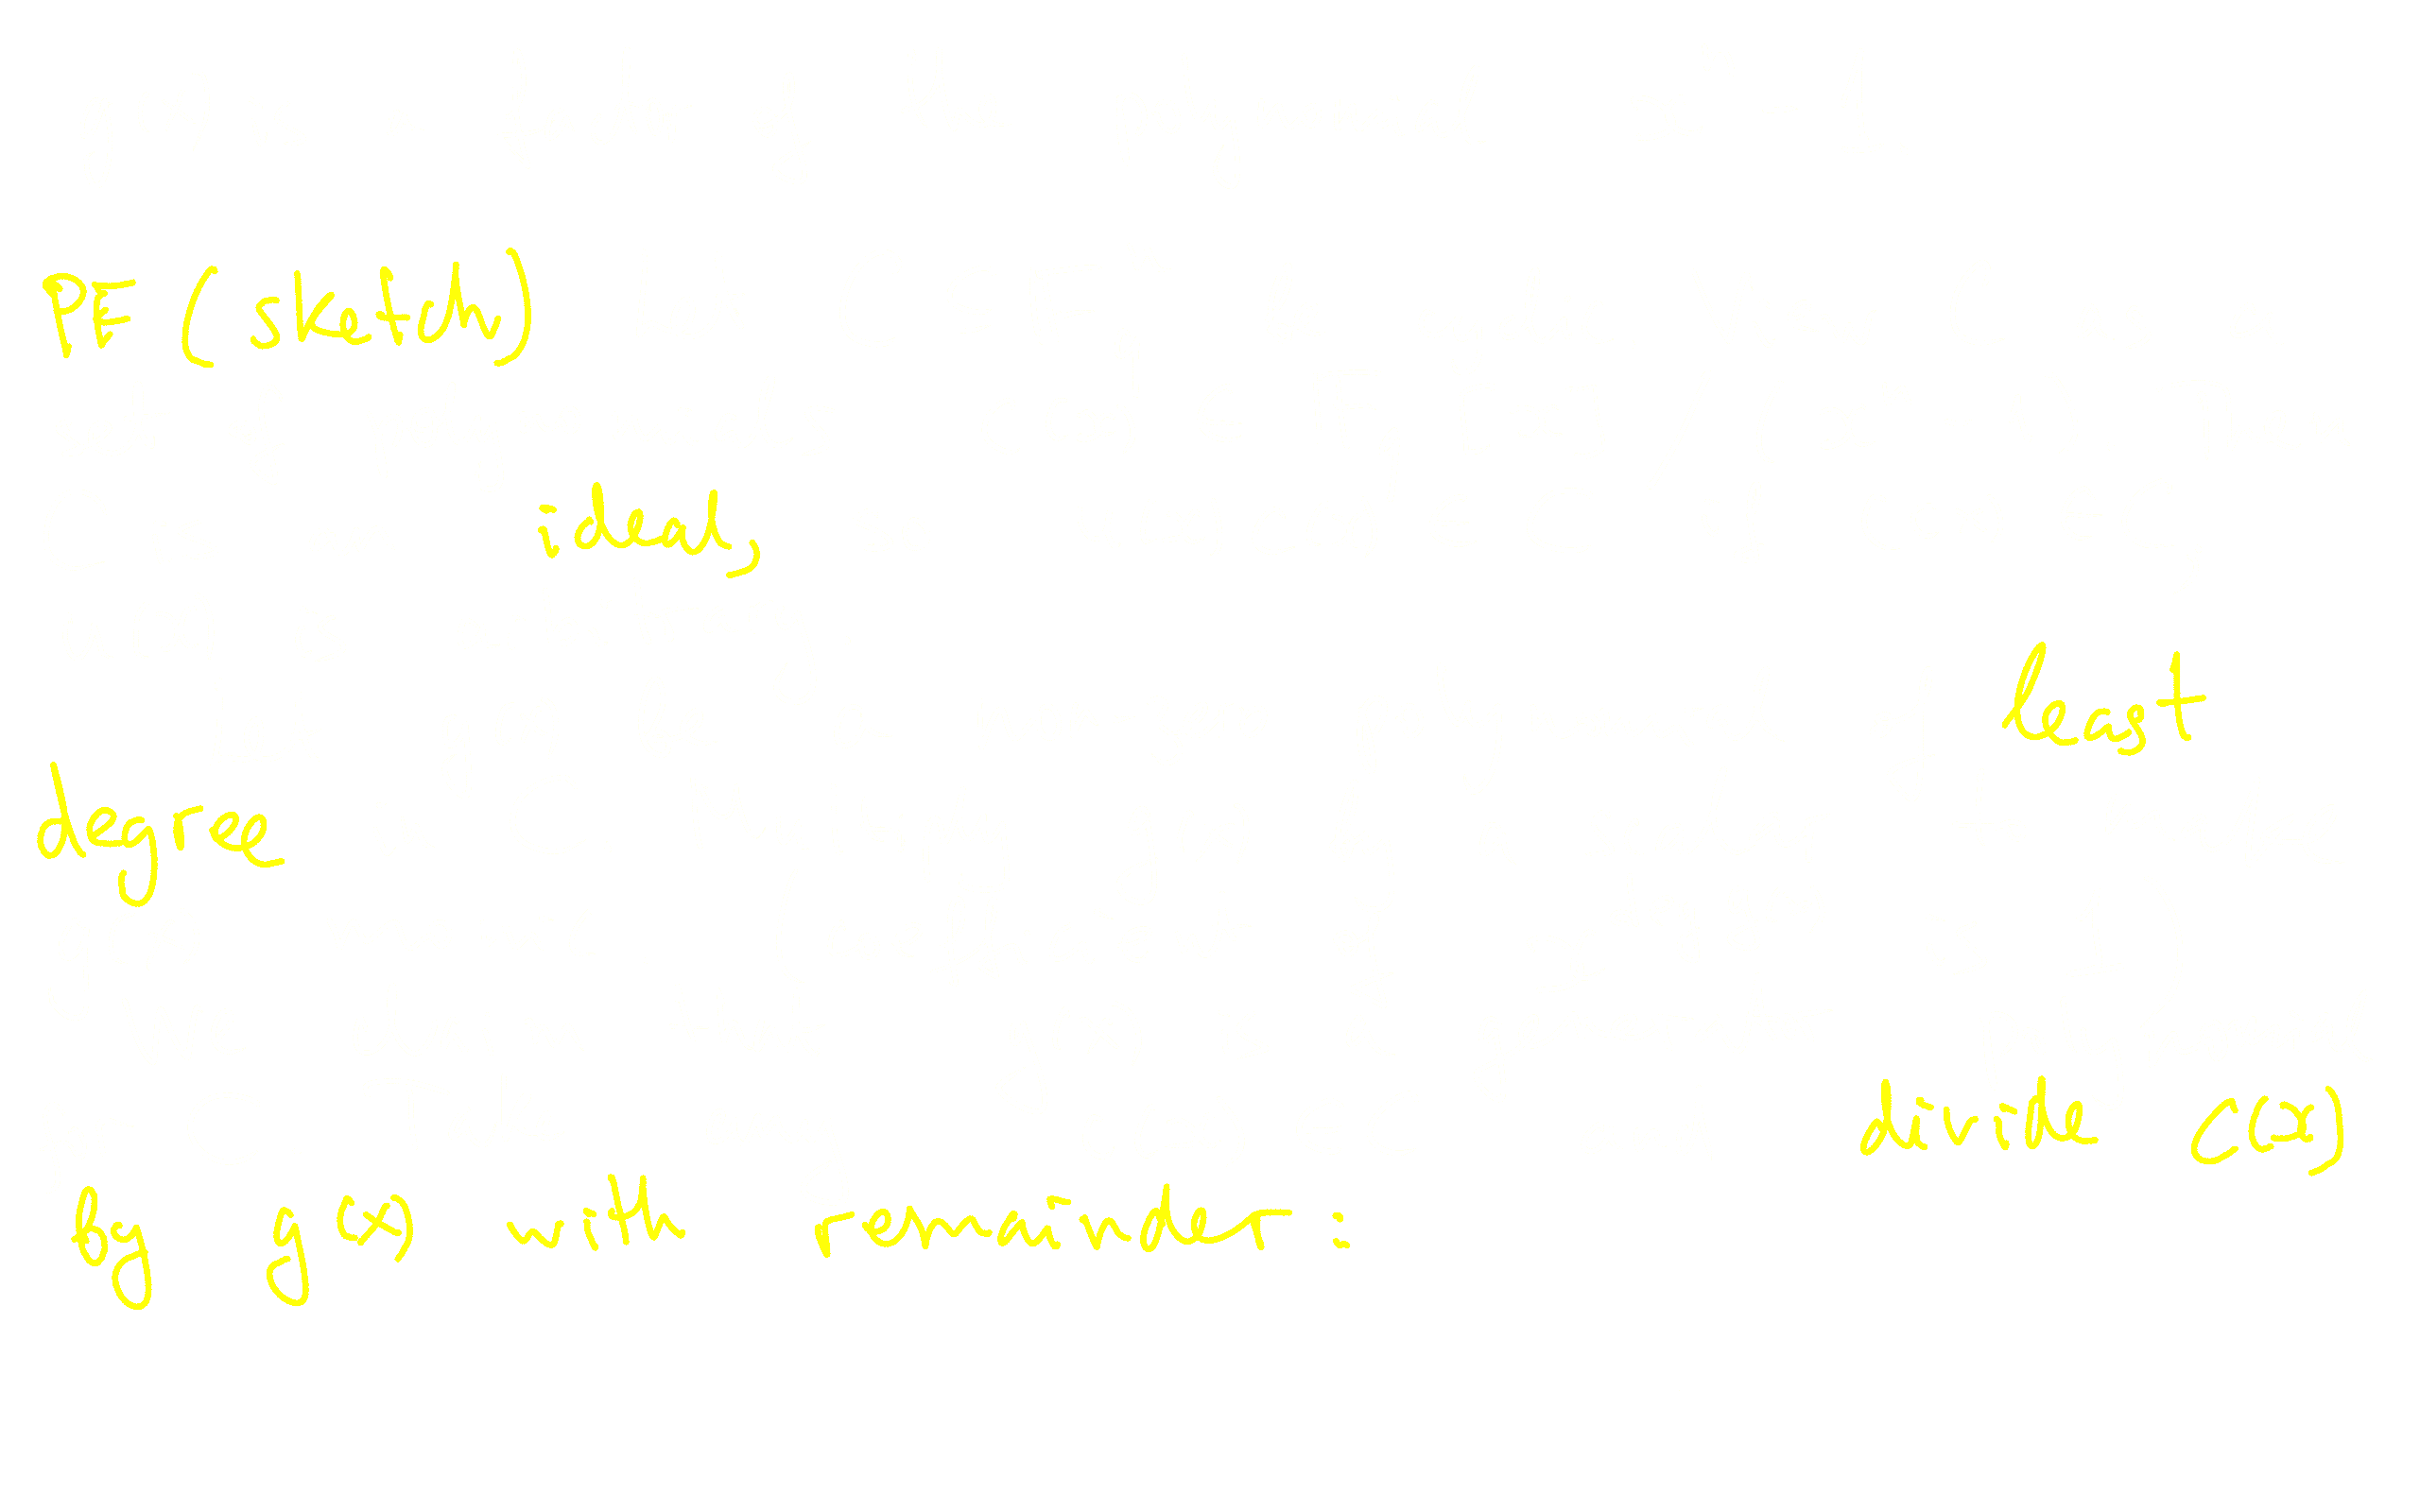 PF (sketch)
ideal,
least
degree
divide c(x)
by g(x) with remainder :